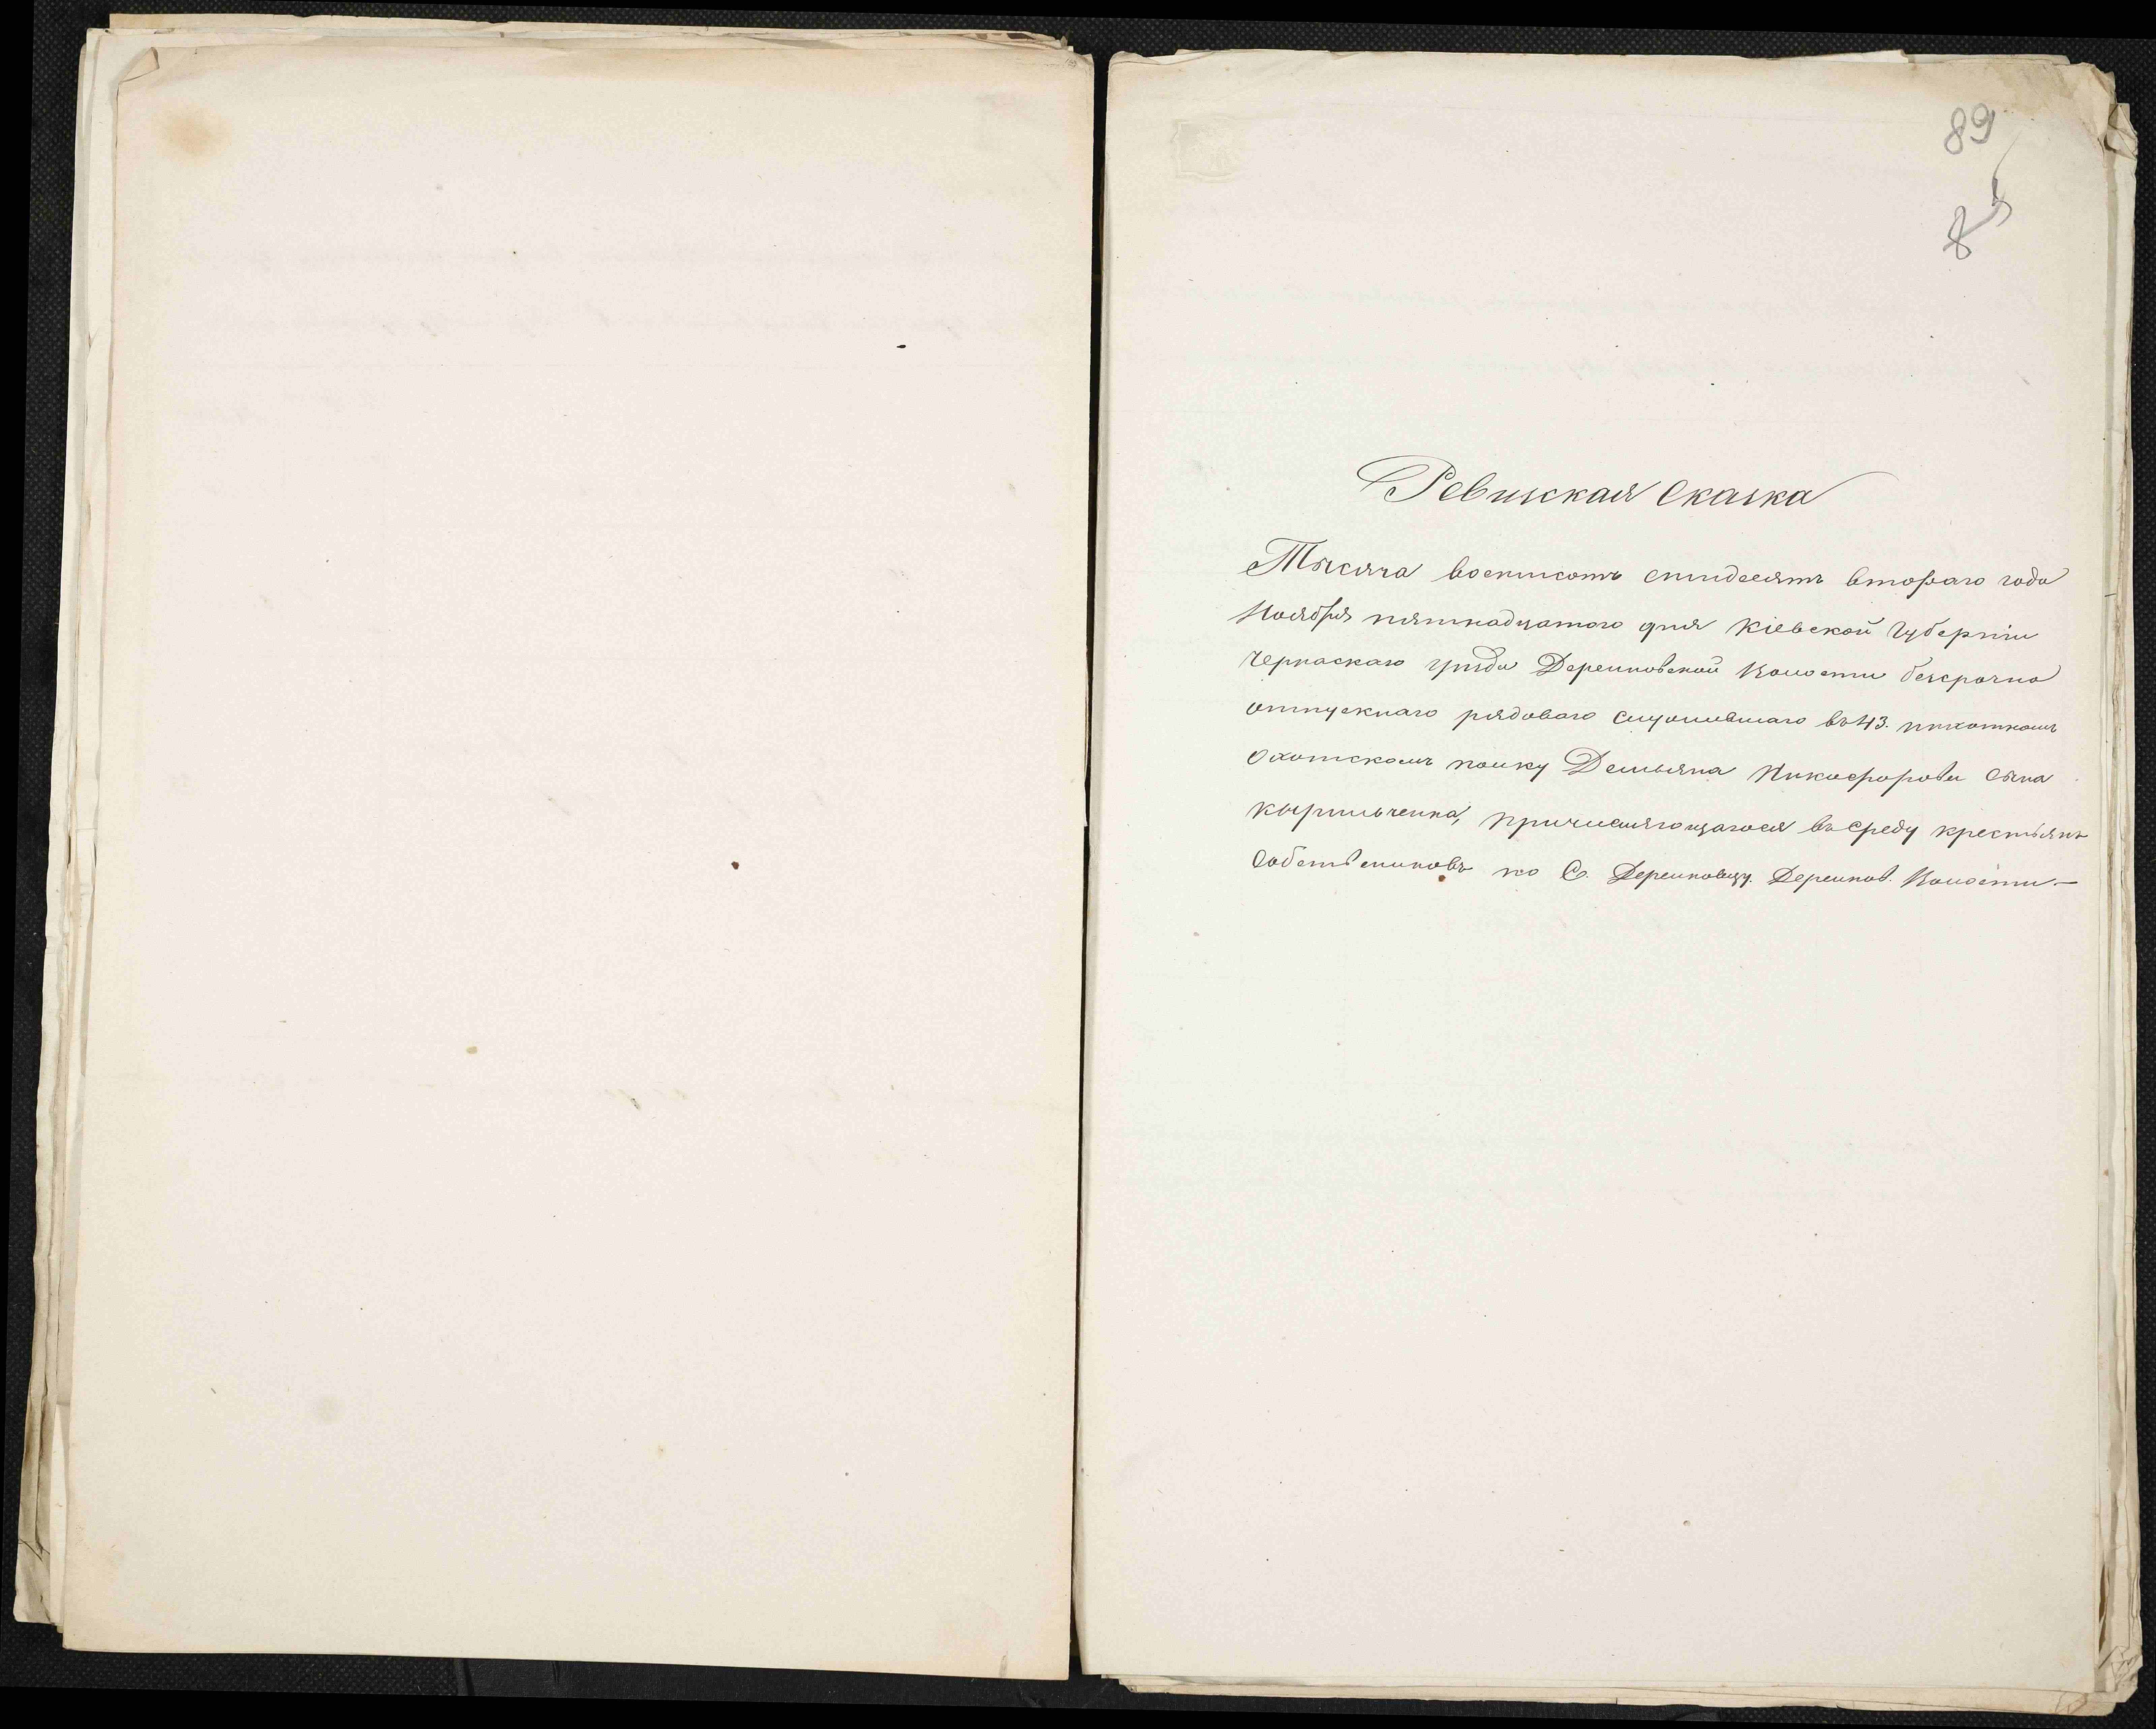 89
85
Ревизская Сказка
Тысяча восемьсотъ семидесятъ втораго года
Ноября пятнадцатого дня Кіевской Губерніи
Черкаскаго уѣзда Деренковской Волости безсрочно
отпускнаго рядоваго служившаго въ 43. пѣхотномъ
Охотскомъ полку Демьяна Никифорова сына
Кырильченка, причисляющагося въ среду крестьянъ
собствениковъ по С. Деренковцу. Деренков. Волости.—